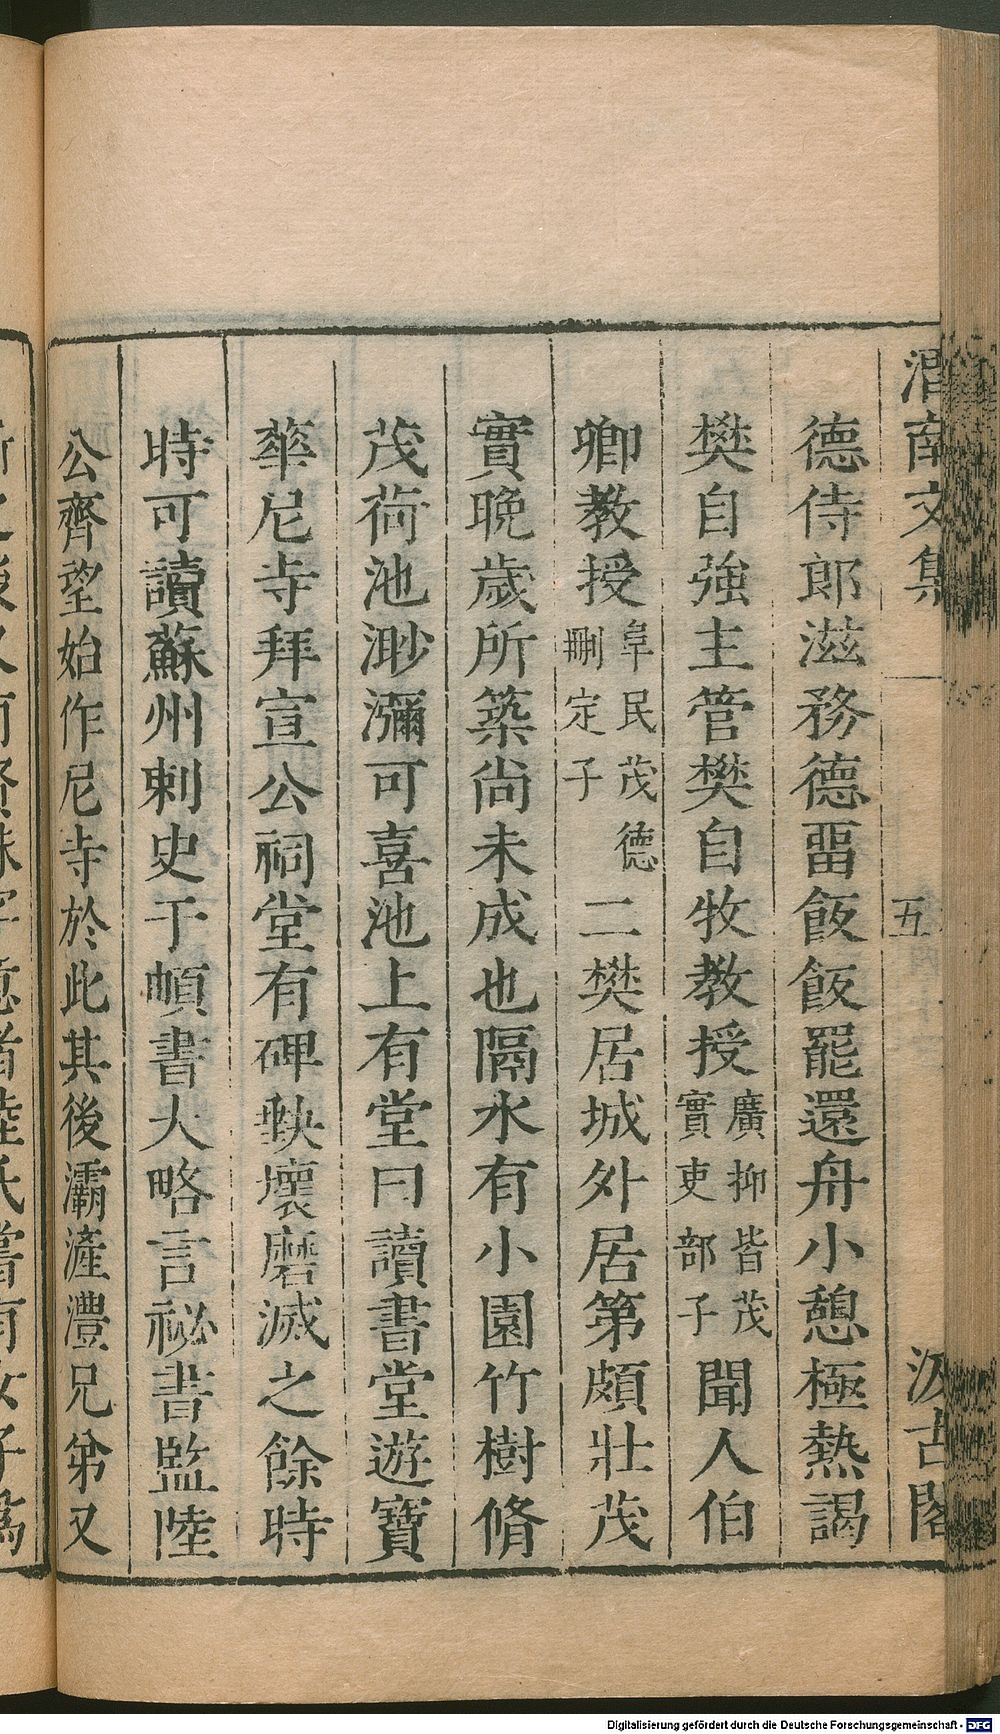 渭南文集 五 汲古閣
德侍郎滋務德畱飯飯罷還舟小憩極熱謁
樊自強主管樊自牧教授廣抑皆茂實吏部子聞人伯
卿教授阜民茂德刪定子二樊居城外居第頗壯茂
實晚歲所築尚未成也隔水有小園竹樹脩
茂荷池渺瀰可喜池上有堂曰讀書堂遊寶
華尼寺拜宣公祠堂有碑缺壞磨滅之餘時
時可讀蘇州刺史于頔書大略言祕書監陸
公齊望始作尼寺於此其後灞滻灃兄弟又
Digitalisierung gefördert durch die Deutsche Forschungsgemeinschaft - DFG